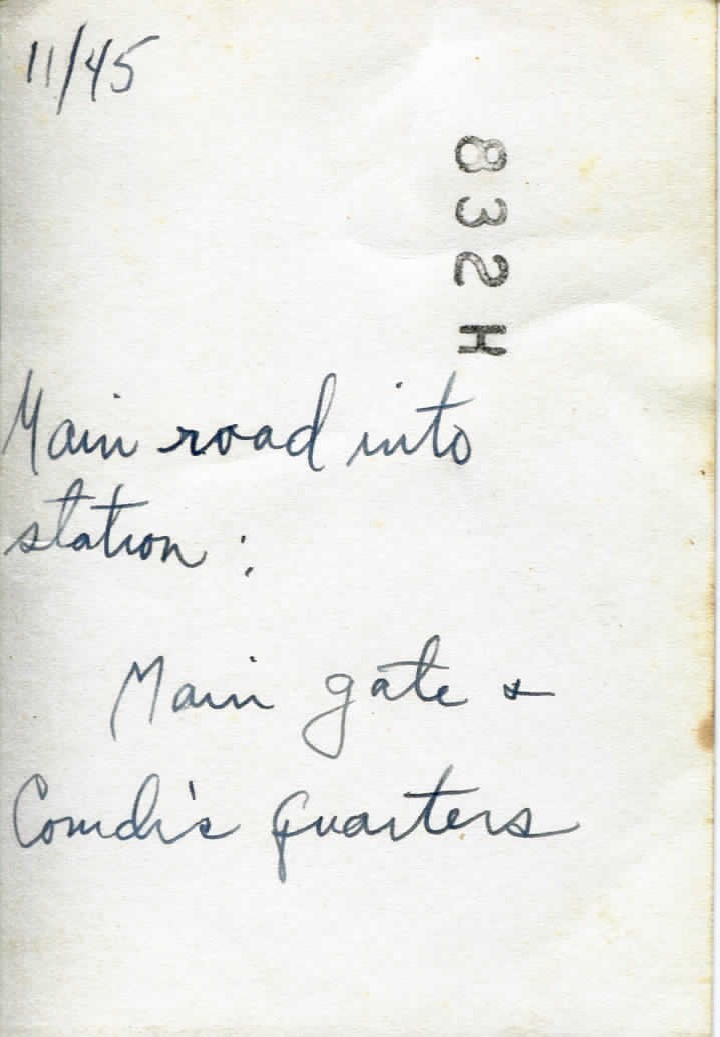 11/45
832H
Main road into
station :
Main gate &
Comdr's quarters